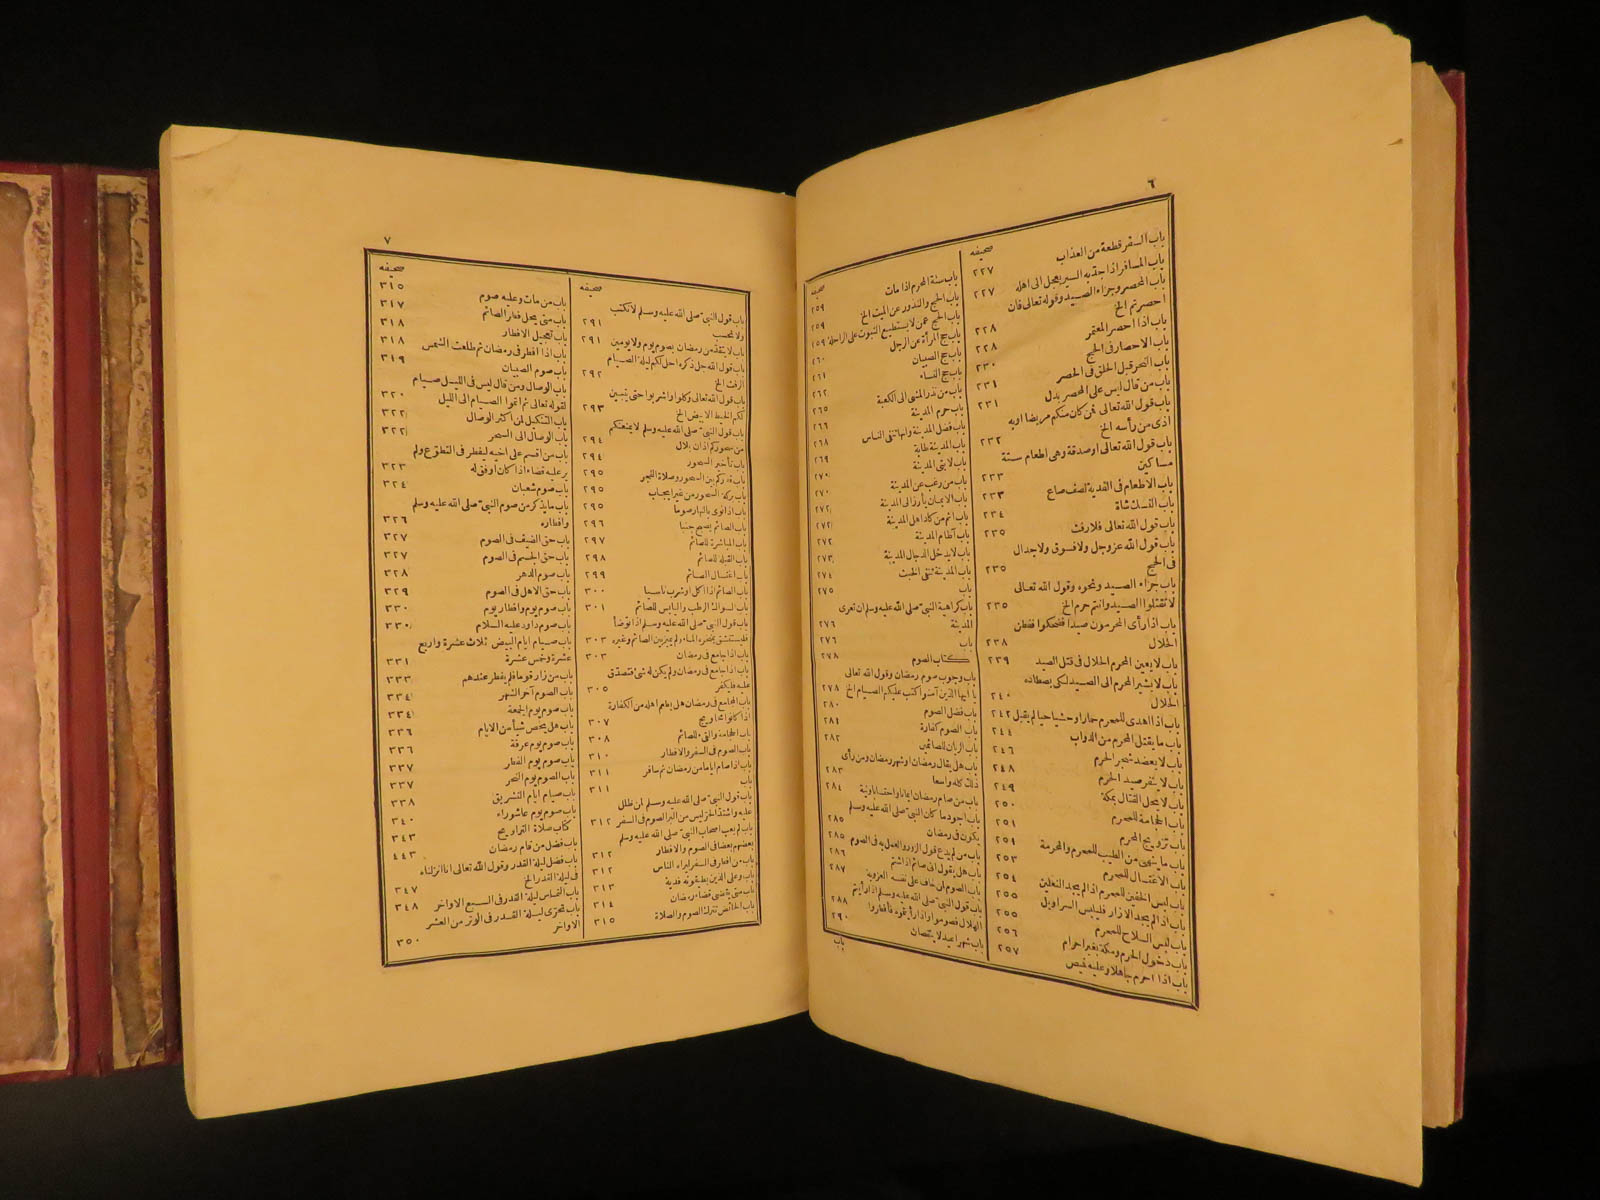 ٦
صحيفه
باب السفر قطعة من العذاب ٢٢٧
باب المسافر اذا جد به السير يعجل الى اهله ٢٢٧
باب المحصر وجزاء الصيد وقوله تعالى فان
احصرتم الخ ٢٢٨
باب اذا احصر المعتمر ٢٢٨
باب الاحصار فى الحج ٢٣٠
باب النحر قبل الحلق فى الحصر ٢٣١
باب من قال ليس على المحصر بدل ٢٣١
باب قول الله تعالى فمن كان منكم مريضا او به
اذى من رأسه الخ ٢٣٢
باب قول الله تعالى او صدقة وهى اطعام ستة
مساكين ٢٣٣
باب الاطعام فى الفدية نصف صاع ٢٣٣
باب النسك شاة ٢٣٤
باب قول الله تعالى فلا رفث ٢٣٥
باب قول الله عز وجل ولا فسوق ولا جدال
فى الحج ٢٣٥
باب جزاء الصيد ونحوه وقول الله تعالى
لا تقتلوا الصيد وانتم حرم الخ ٢٣٥
باب اذا رأى المحرمون صيدا فضحكوا ففطن
الحلال ٢٣٨
باب لا يعين المحرم الحلال فى قتل الصيد ٢٣٩
باب لا يشير المحرم الى الصيد لكى يصطاده
الحلال ٢٤٠
باب اذا اهدى للمحرم حمارا وحشيا حيا لم يقبل ٢٤٢
باب ما يقتل المحرم من الدواب ٢٤٤
باب لا يعضد شجر الحرم ٢٤٦
باب لا ينفر صيد الحرم ٢٤٨
باب لا يحل القتال بمكة ٢٤٩
باب الحجامة للمحرم ٢٥٠
باب تزويج المحرم ٢٥١
باب ما ينهى من الطيب للمحرم والمحرمة
باب الاغتسال للمحرم ٢٥٣
باب لبس الخفين للمحرم اذا لم يجد النعلين ٢٥٤
باب اذا لم يجد الازار فليلبس السراويل ٢٥٥
باب لبس السلاح للمحرم ٢٥٥
باب دخول الحرم ومكة بغير احرام ٢٥٦
باب اذا احرم جاهلا وعليه قميص ٢٥٧
صحيفه
باب سنة المحرم اذا مات ٢٥٩
باب الحج والنذور عن الميت الخ ٢٥٩
باب الحج عمن لا يستطيع الثبوت على الراحلة ٢٥٩
باب حج المرأة عن الرجل ٢٦٠
باب حج الصبيان ٢٦١
باب حج النساء ٢٦٢
باب من نذر المشى الى الكعبة ٢٦٥
باب حرم المدينة ٢٦٦
باب فضل المدينة وانها تنفى الناس ٢٦٨
باب المدينة طابة ٢٦٩
باب لابتى المدينة ٢٧٠
باب من رغب عن المدينة ٢٧٠
باب الايمان يأرز الى المدينة ٢٧٢
باب اثم من كاد اهل المدينة ٢٧٢
باب آطام المدينة ٢٧٢
باب لا يدخل الدجال المدينة ٢٧٣
باب المدينة تنفى الخبث ٢٧٤
باب ٢٧٥
باب كراهية النبى صلى الله عليه وسلم ان تعرى
المدينة ٢٧٦
باب ٢٧٦
كتاب الصوم ٢٧٨
باب وجوب صوم رمضان وقول الله تعالى
يا ايها الذين آمنوا كتب عليكم الصيام الخ ٢٧٨
باب فضل الصوم ٢٨٠
باب الصوم كفارة ٢٨٤
باب الريان للصائمين ٢٨٢
باب هل يقال رمضان او شهر رمضان ومن رأى
ذلك كله واسعا ٢٨٣
باب من صام رمضان ايمانا واحتسابا ونية ٢٨٤
باب اجود ما كان النبى صلى الله عليه وسلم
يكون فى رمضان ٢٨٥
باب من لم يدع قول الزور والعمل به فى الصوم ٢٨٥
باب هل يقول انى صائم اذا شتم ٢٨٦
باب الصوم لمن خاف على نفسه العزوبة ٢٨٧
باب قول النبى صلى الله عليه وسلم اذا رأيتم
الهلال فصوموا واذا رأيتموه فافطروا ٢٨٨
باب شهرا عيد لا ينقصان ٢٩٠
باب
٧
صحيفه
باب قول النبى صلى الله عليه وسلم لا نكتب
ولا نحسب ٢٩١
باب لا يتقدمن رمضان بصوم يوم ولا يومين ٢٩١
باب قول الله جل ذكره احل لكم ليلة الصيام
الرفث الخ ٢٩٢
باب قول الله تعالى وكلوا واشربوا حتى يتبين
لكم الخيط الابيض الخ ٢٩٣
باب قول النبى صلى الله عليه وسلم لا يمنعنكم
من سحوركم اذان بلال ٢٩٤
باب تأخير السحور ٢٩٤
باب قدركم بين السحور وصلاة الفجر ٢٩٥
باب بركة السحور من غير ايجاب ٢٩٥
باب اذا نوى بالنهار صوما ٢٩٥
باب الصائم يصبح جنبا ٢٩٦
باب المباشرة للصائم ٢٩٧
باب القبلة للصائم ٢٩٨
باب اغتسال الصائم ٢٩٩
باب الصائم اذا اكل او شرب ناسيا ٣٠٠
باب السواك الرطب واليابس للصائم ٣٠١
باب قول النبى صلى الله عليه وسلم اذا توضأ
فليستنشق بمنخره الماء ولم يميز بين الصائم وغيره ٣٠٣
باب اذا جامع فى رمضان ٣٠٣
باب اذا جامع فى رمضان ولم يكن له شئ فتصدق
عليه فليكفر ٣٠٥
باب المجامع فى رمضان هل يطعم اهله من الكفارة
اذا كانوا محاويج ٣٠٧
باب الحجامة والقئ للصائم ٣٠٨
باب الصوم فى السفر والافطار ٣١٠
باب اذا صام اياما من رمضان ثم سافر ٣١١
باب ٣١١
باب قول النبى صلى الله عليه وسلم لمن ظلل
عليه واشتد الحر ليس من البر الصوم فى السفر ٣١٢
باب لم يعب اصحاب النبى صلى الله عليه وسلم
بعضهم بعضا فى الصوم والافطار ٣١٢
باب من افطر فى السفر ليراه الناس ٣١٢
باب وعلى الذين يطيقونه فدية ٣١٣
باب متى يقضى قضاء رمضان ٣١٤
باب الحائض تترك الصوم والصلاة ٣١٥
صحيفه
باب من مات وعليه صوم ٣١٥
باب متى يحل فطر الصائم ٣١٧
باب تعجيل الافطار ٣١٨
باب اذا افطر فى رمضان ثم طلعت الشمس ٣١٨
باب صوم الصبيان ٣١٩
باب الوصال ومن قال ليس فى الليل صيام
لقوله تعالى ثم اتموا الصيام الى الليل ٣٢٠
باب التنكيل لمن اكثر الوصال ٣٢٢
باب الوصال الى السحر ٣٢٢
باب من اقسم على اخيه ليفطر فى التطوع ولم
ير عليه قضاء اذا كان اوفق له ٣٢٣
باب صوم شعبان ٣٢٤
باب ما يذكر من صوم النبى صلى الله عليه وسلم
وافطاره ٣٢٦
باب حق الضيف فى الصوم ٣٢٧
باب حق الجسم فى الصوم ٣٢٧
باب صوم الدهر ٣٢٨
باب حق الاهل فى الصوم ٣٢٩
باب صوم يوم وافطار يوم ٣٣٠
باب صوم داود عليه السلام ٣٣٠
باب صيام ايام البيض ثلاث عشرة واربع
عشرة وخمس عشرة ٣٣١
باب من زار قوما فلم يفطر عندهم ٣٣٣
باب الصوم آخر الشهر ٣٣٤
باب صوم يوم الجمعة ٣٣٤
باب هل يخص شيأ من الايام ٣٣٦
باب صوم يوم عرفة ٣٣٦
باب صوم يوم الفطر ٣٣٧
باب الصوم يوم النحر ٣٣٧
باب صيام ايام التشريق ٣٣٨
باب صوم يوم عاشوراء ٣٤٠
كتاب صلاة التراويح ٣٤٣
باب فضل من قام رمضان ٤٤٣
باب فضل ليلة القدر وقول الله تعالى انا انزلناه
فى ليلة القدر الخ ٣٤٧
باب التماس ليلة القدر فى السبع الاواخر ٣٤٨
باب تحرى ليلة القدر فى الوتر من العشر
الاواخر ٣٥٠